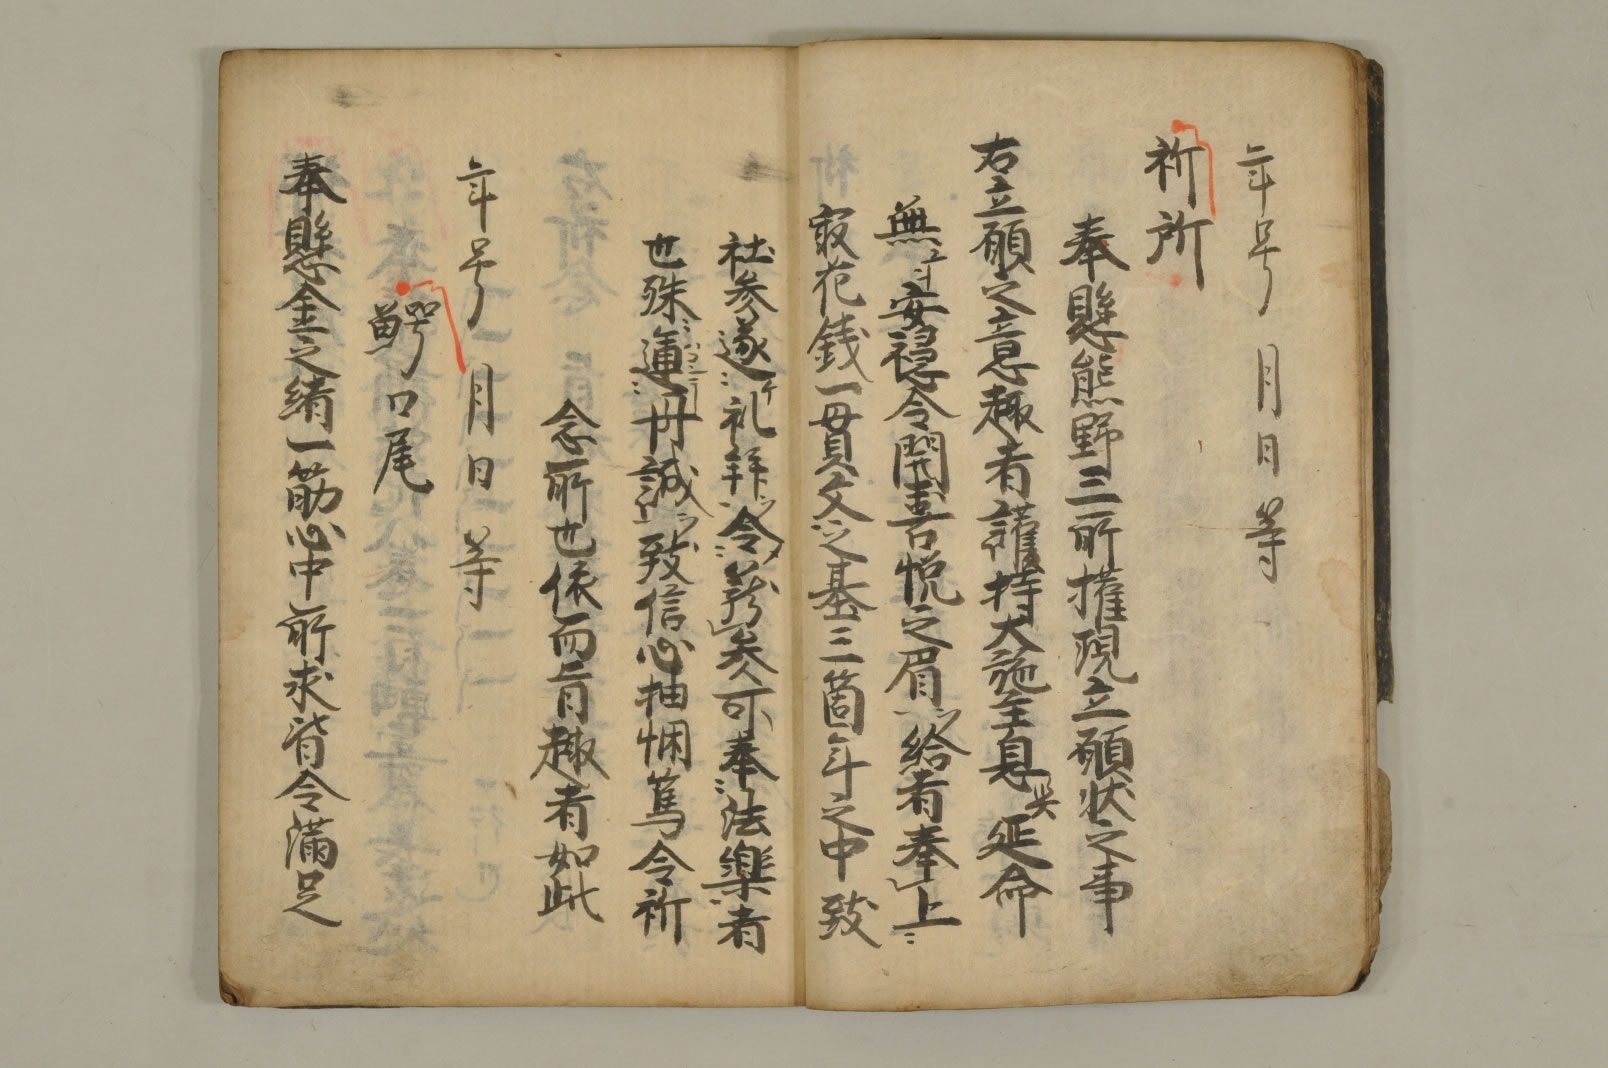 年号月日等
祈所
奉懸熊野三所権現立願状之事
右立願之意趣者護持大施主息災延命
無安穏令開喜悦之眉給者奉上
散花銭一貫文之基三箇年之中致
社参遂礼拝令矣可奉法樂者
也殊運丹誠致信心抽悃篤令祈
念所也依而旨趣者如此
年号月日等
鰐口尾
奉懸金之緒一筋心中所求皆令満足